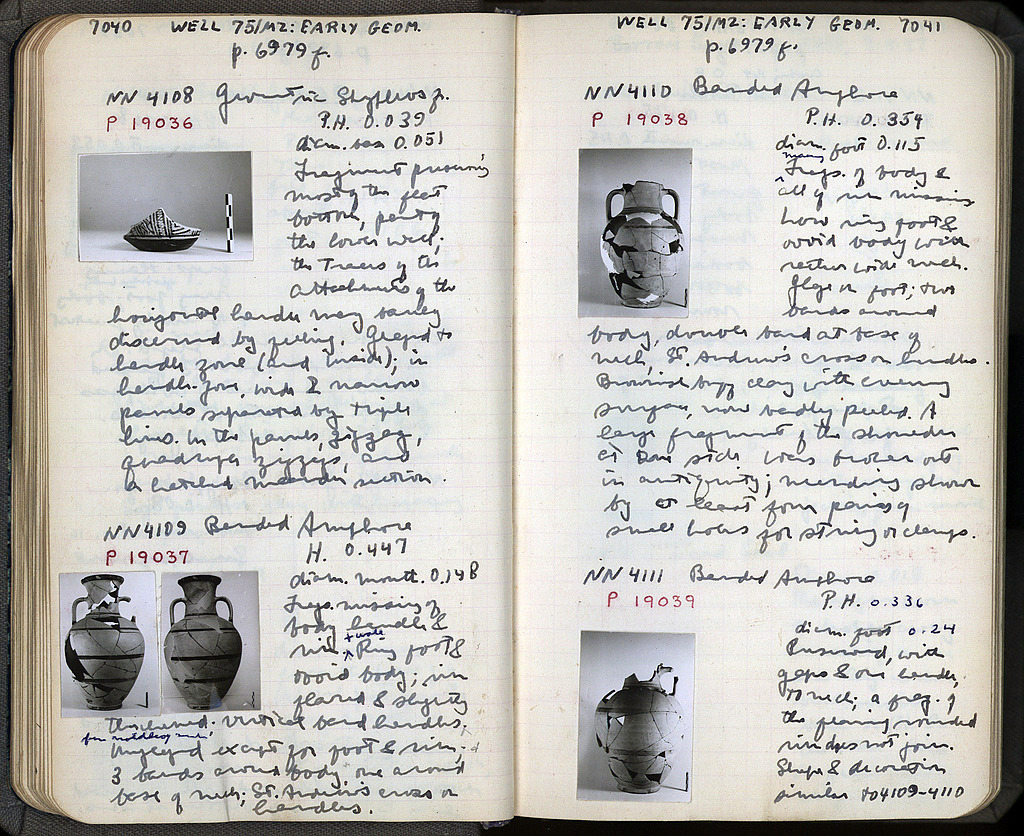 7040 WELL 75/MZ: EARLY GEOM.
p. 6979 f.
NN 4108 Geometric Skyphos fr.
P 19036 P.H. 0.039
diam. base 0.051
Fragment preserving
most of the flat
bottom, part of
the lower wall;
the traces of the
attachments of the
horizontal handles may barely
discerned by peeling. Glazed to
handle zone (and inside); in
handle-zone, wide & narrow
panels separated by triple
lines. In the panels, zigzag,
quadruple zigzags, and
a hatched meander section.
NN 4109 Banded Amphora
P 19037 H. 0.447
diam. mouth. 0.148
Frags. missing of
body handles &
rim + wall Ring foot &
ovoid body; rim
flared & slightly
thickened. Vertical band handles;
Unglazed except for foot & rim;
3 bands around body, one around
base of neck; St. Andrew's cross on
handles.
WELL 75/MZ: EARLY GEOM. 7041
p. 6979 f.
NN 4110 Banded Amphora
P 19038 P.H. 0.354
diam. foot 0.115
many
Frags. of body &
all of rim missing
Low ring foot &
ovoid body with
rather wide neck.
Glaze on foot; two
bands around
body, double band at base of
neck, St. Andrew's cross on handles.
Brownish buff clay with creamy
surface, now badly peeled. A
large fragment of the shoulder
at one side was broken out
in antiquity; mending shown
by at least four pairs of
small holes for string or clamps.
NN 4111 Banded Amphora
P 19039 P.H. 0.336
diam. foot 0.24
Preserved, with
gaps & one handle,
to neck; a frag. of
the flaring rounded
rim does not join.
Shape & decoration
similar to 4109-4110